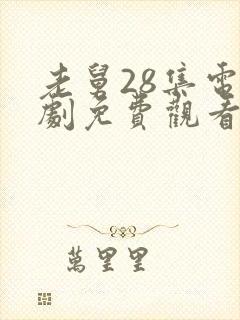 老舅28集電
劇免費觀看
萬里里